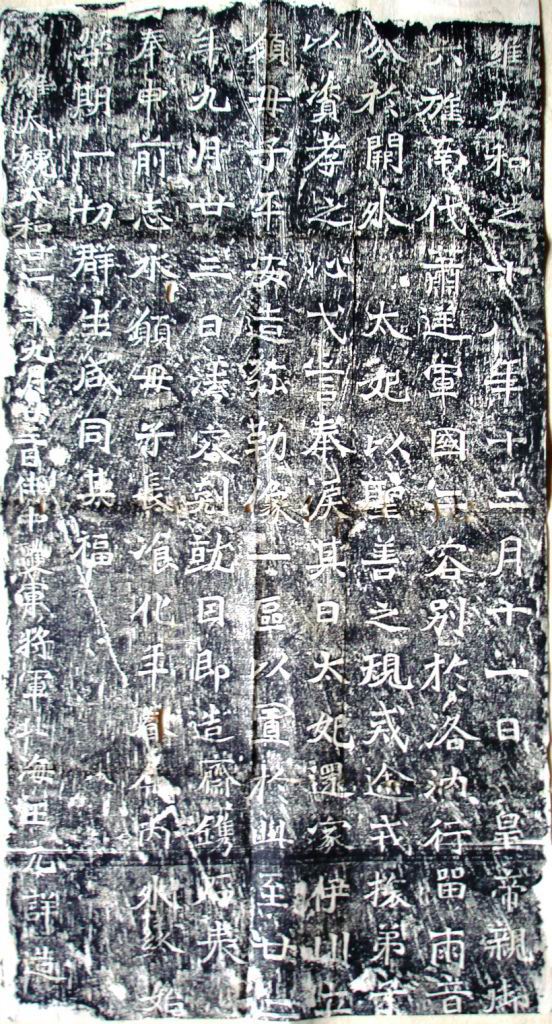 維太和之十八年十二月十一日皇帝親御
六旌南伐蕭逆軍國二容別於洛汭行留兩音
分於闕外太妃以聖善之規戒途戎旅弟子
以資孝之心戈言奉淚其日太妃還家伊川立
願母子平安造弥勒像一區以置於此至廿二
年九月廿三日法容剋就因即造齋鐫石表
奉申前志永願母子長飡化年眷內外終始
榮期一切群生咸同其福
維大魏太和廿二年九月廿三日侍中護軍將軍北海王元詳造